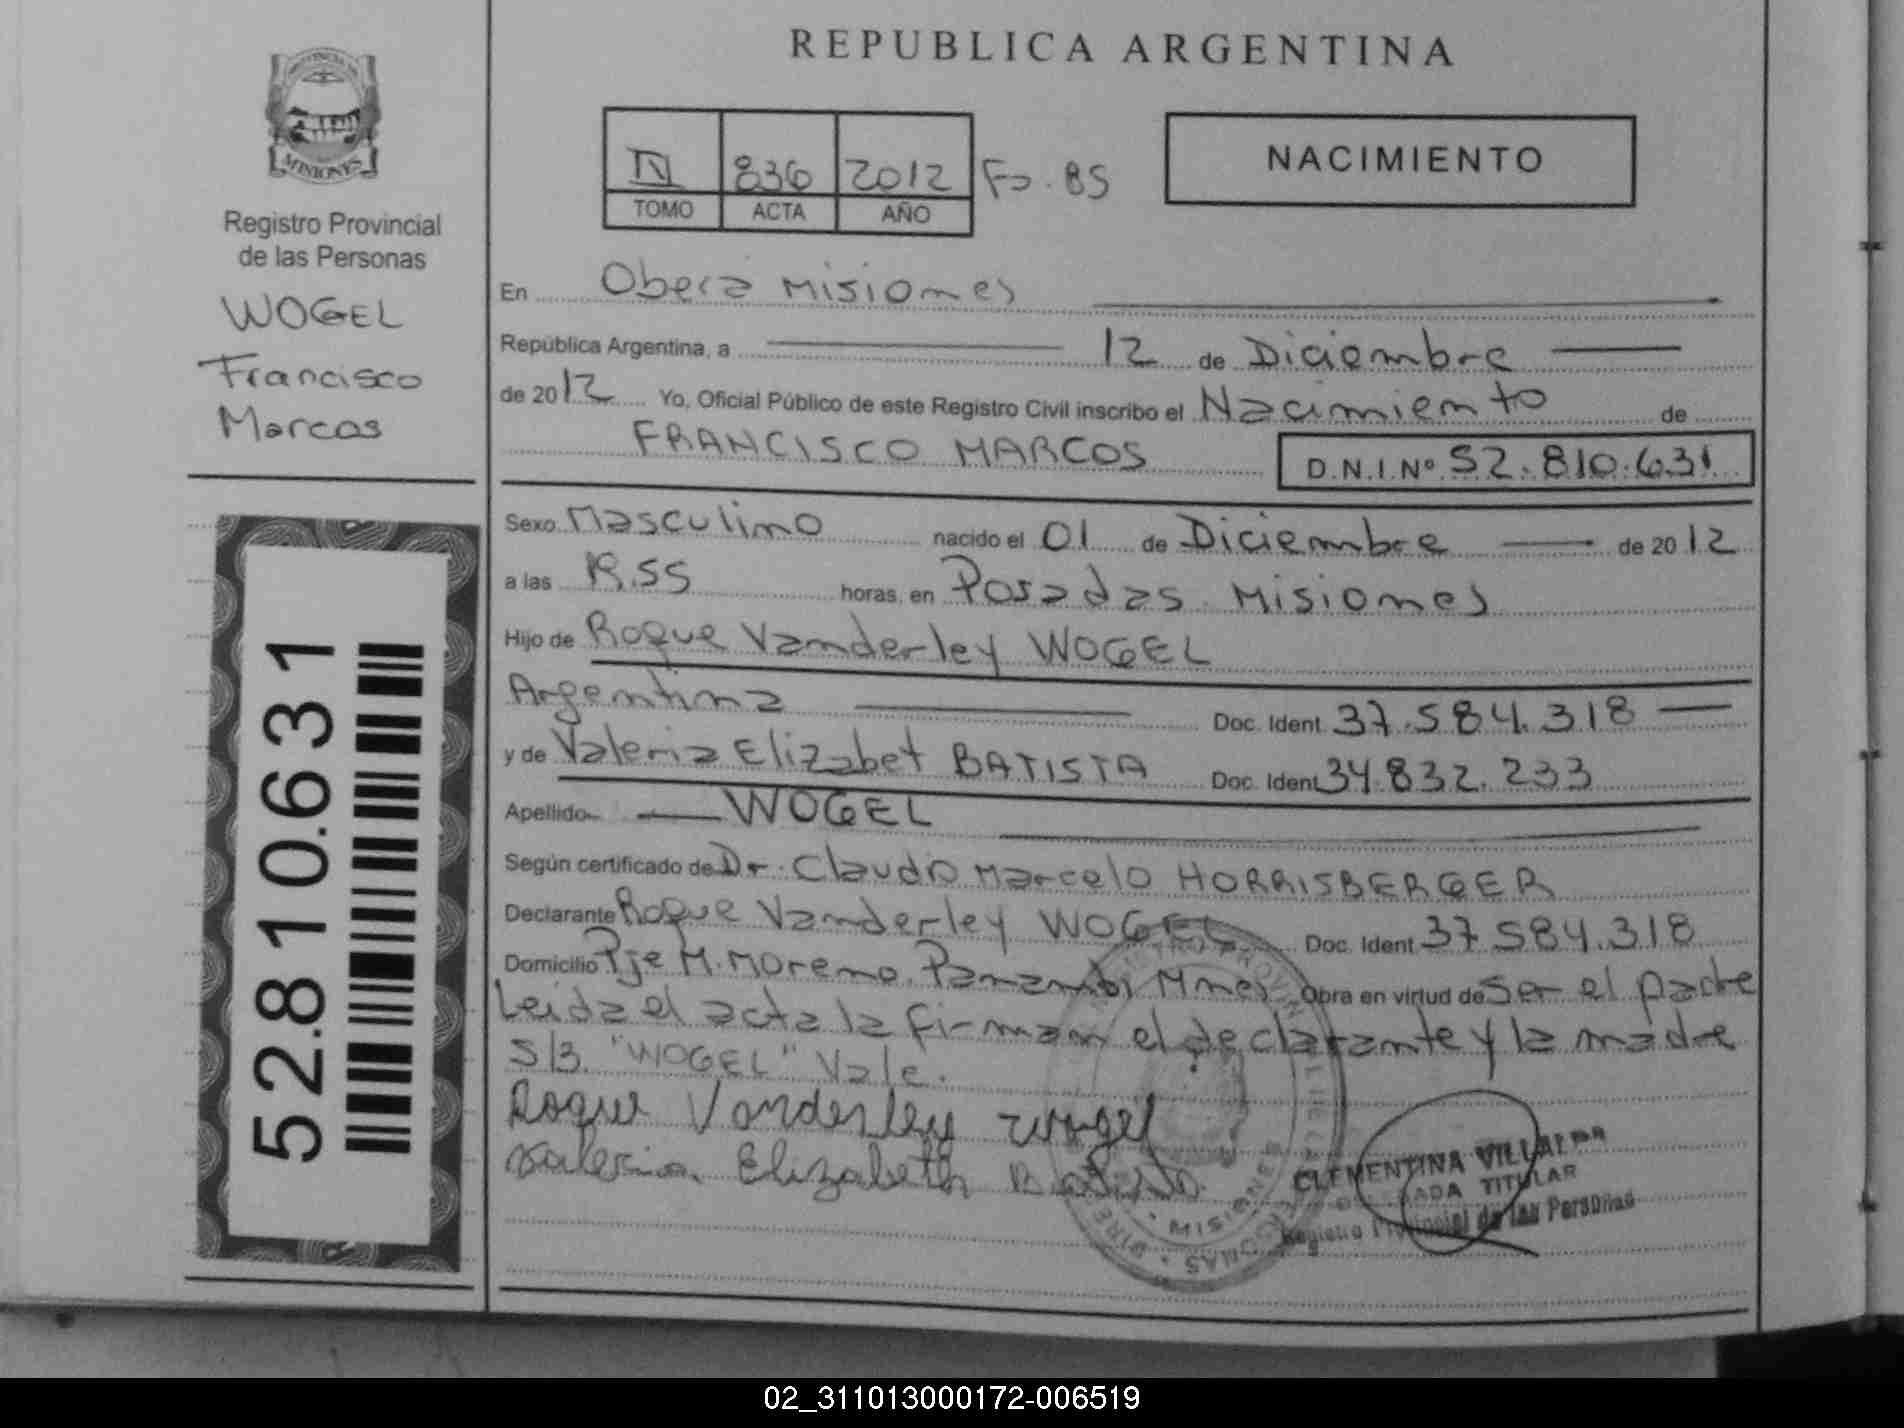 REPUBLICA ARGENTINA
PROVINCIA DE
MISIONES
Registro Provincial
de las Personas
WOGEL
Francisco
Marcos
IV 836 2012 Fo. 85
TOMO ACTA AÑO
NACIMIENTO
En Oberá Misiones
República Argentina, a 12 de Diciembre
de 2012 Yo, Oficial Público de este Registro Civil inscribo el Nacimiento de
FRANCISCO MARCOS D.N.I.Nº 52.810.631
Sexo Masculino nacido el 01 de Diciembre de 2012
a las horas, en Posadas Misiones
Hijo de Roque Vanderley WOGEL
Argentina Doc. Ident. 37.584.318
y de Valeria Elizabet BATISTA Doc. Ident 34.832.233
Apellido WOGEL
Según certificado de Dr. Claudio Marcelo HORRISBERGER
Declarante Roque Vanderley WOGEL Doc. Ident. 37.584.318
Domicilio Pje M. Moreno. Panambi Mnes Obra en virtud de Ser el padre
Leida el acta la firman el declarante y la madre
S/B. "WOGEL" Vale.
Roque Vanderley Wogel
Valeria Elizabeth Batista
CLEMENTINA VILLALBA
DELEGADA TITULAR
Registro Provincial de las Personas
MISIONES
52.810.631
02_311013000172-006519